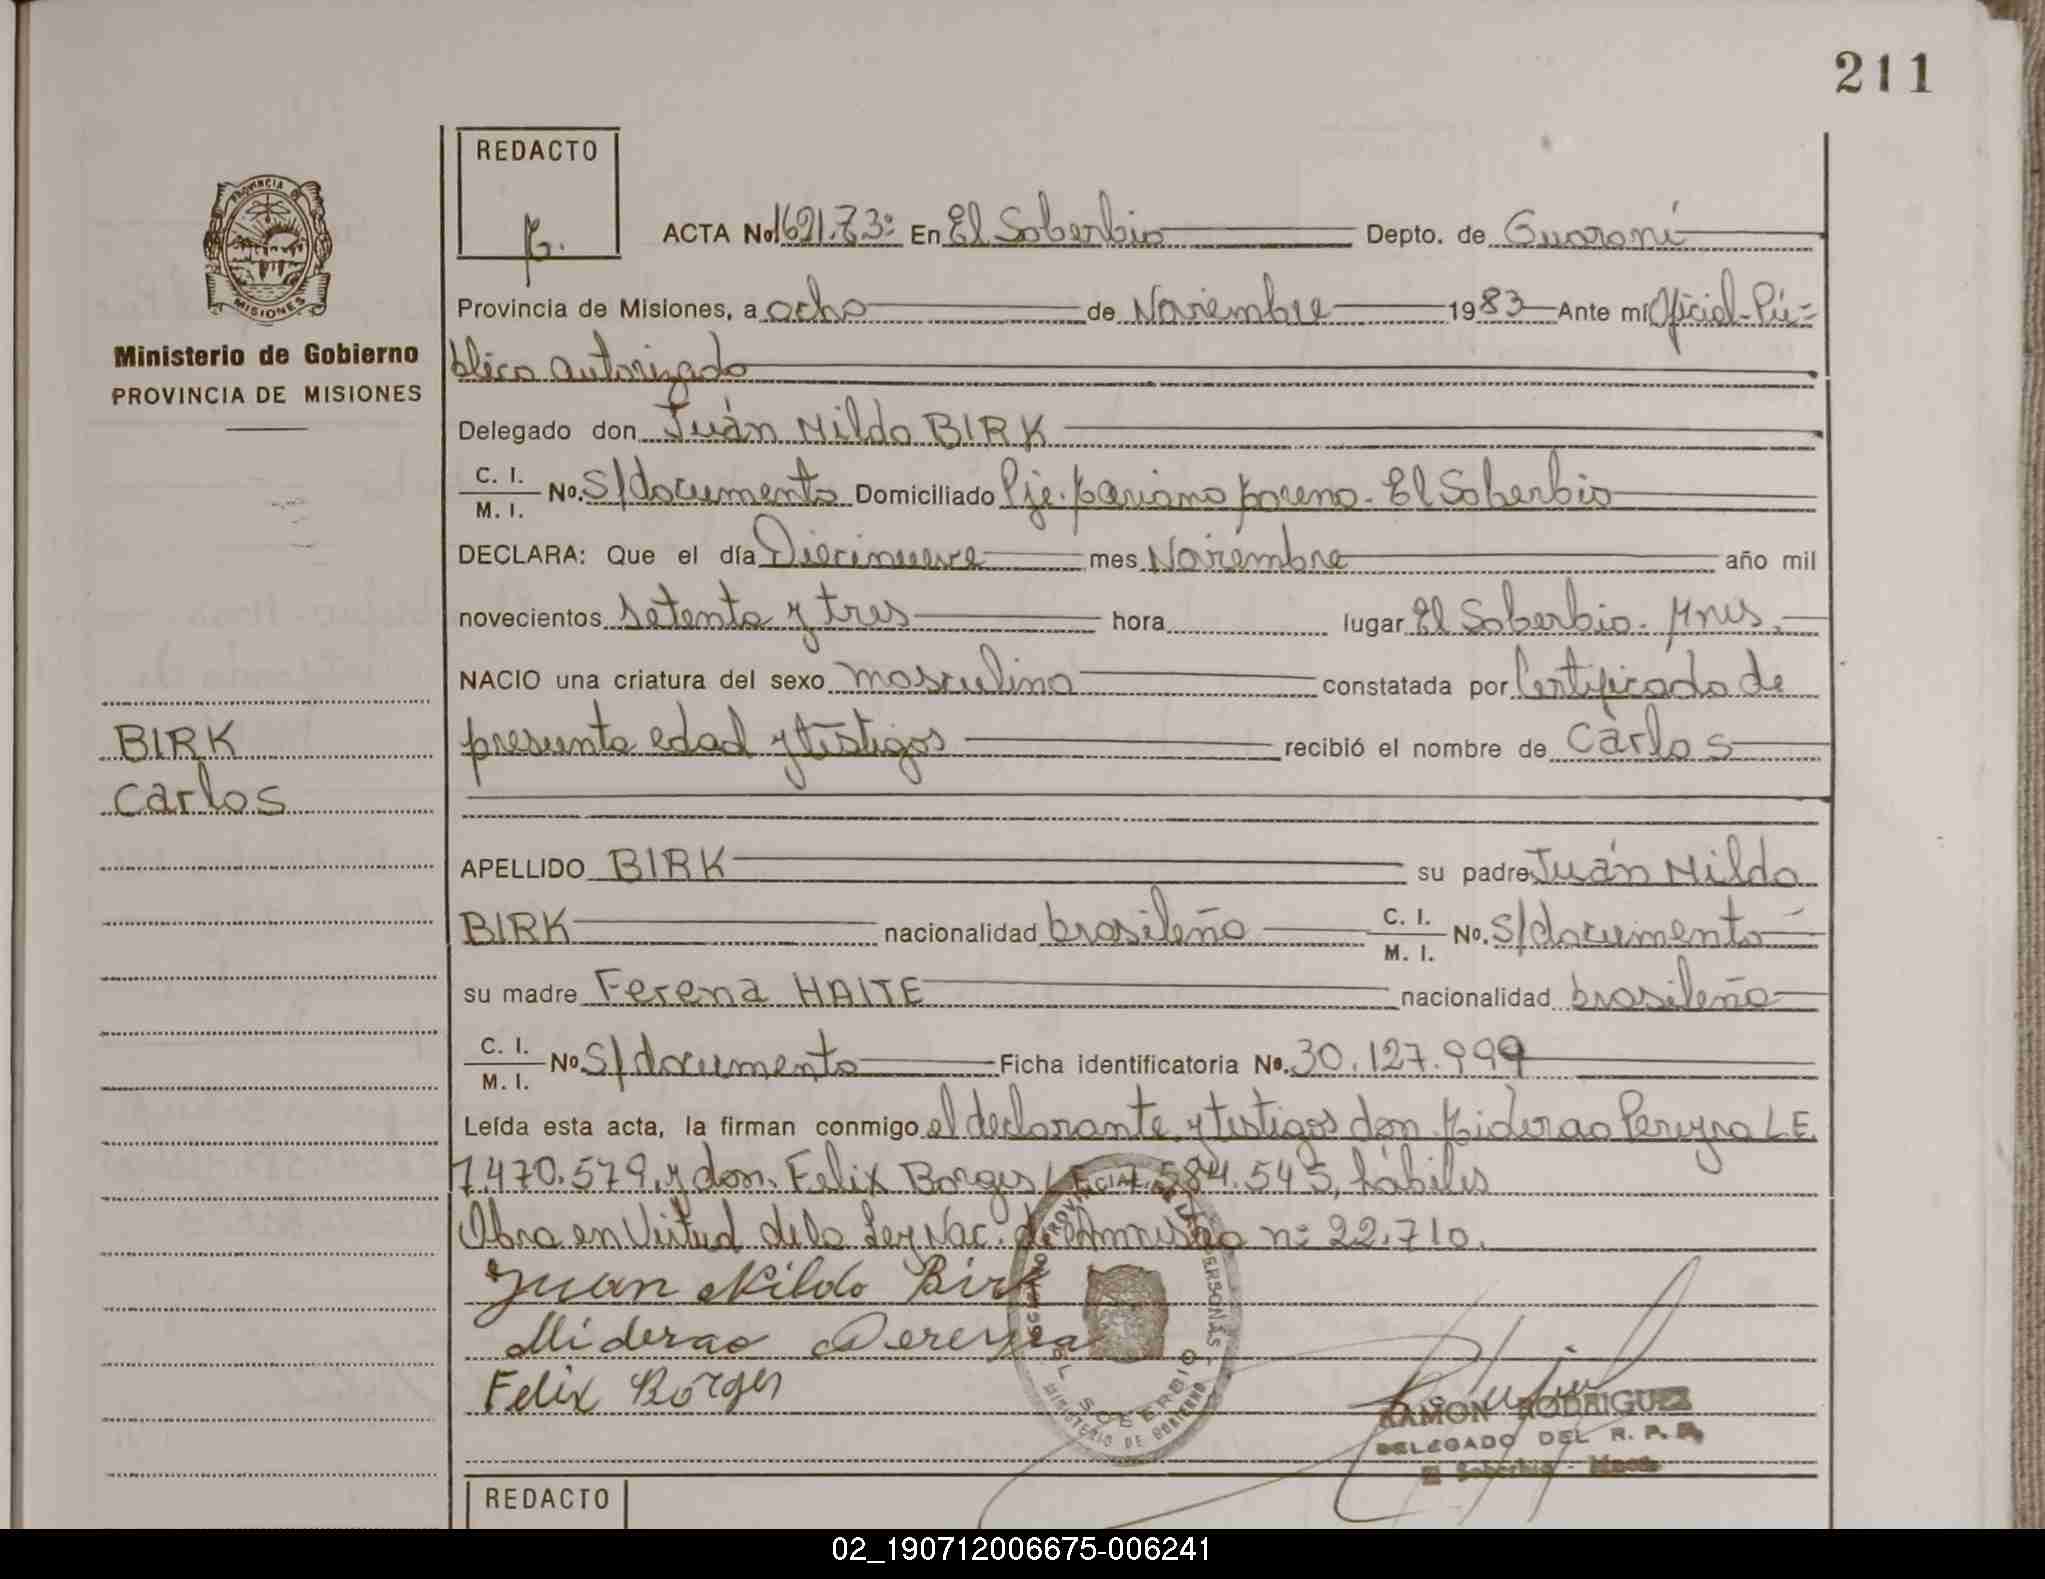 211
REDACTO
ACTA No 1621.73: En El Soberbio Depto. de Guaraní
Provincia de Misiones, a ocho de Noviembre 1983 Ante mí Oficial Pú=
blico autorizado
Ministerio de Gobierno
PROVINCIA DE MISIONES
Delegado don Juán Nildo BIRK
C. I.
M. I. No. S/documento Domiciliado Pje. El Soberbio
DECLARA: Que el día Diecinueve mes Noviembre año mil
novecientos setenta y tres hora lugar El Soberbio. Mnes.
NACIO una criatura del sexo masculino constatada por Certificado de
presunta edad y testigos recibió el nombre de Carlos
BIRK
Carlos
APELLIDO BIRK su padre Juán Nildo
BIRK nacionalidad brasileño C. I.
M. I. No. S/documento
su madre Ferena HAITE nacionalidad brasileña
C. I.
M. I. No S/documento Ficha identificatoria No. 30.127.999
Leída esta acta, la firman conmigo el declarante y testigos don Miderao Pereyra L E
7.470.579, y don. Felix Borges L E 7.584.545, hábiles
Obra en Virtud de la Ley Nac. de Amnistía nº 22.710.
Juan Nildo Birk
Miderao Pereyra
Felix Borges
EL SOBERBIO
MINISTERIO DE GOBIERNO
RAMON RODRIGUEZ
DELEGADO DEL R. P. P.
El Soberbio - Mnes.
REDACTO
02_190712006675-006241